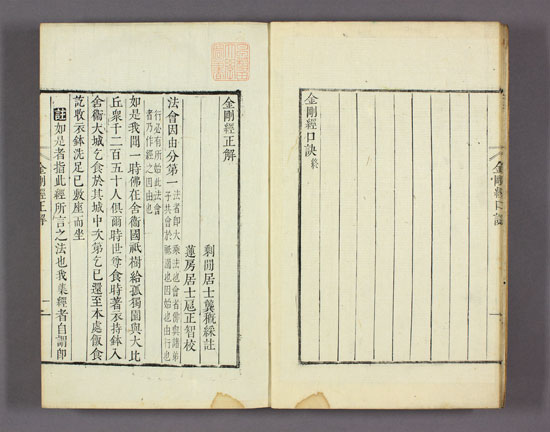 金剛經口訣
金剛經口訣終
金剛經正解
剩閒居士龔槪綵註
蓮房居士扈正智校
法會因由分第一
法者即大乘法也會者佛與諸弟
子共會於祇園也因始也由行也
行必有所始此法會
者乃作經之因由也
如是我聞一時佛在舍衞國祇樹給孤獨園與大比
丘衆千二百五十人俱爾時世尊食時著衣持鉢入
舍衞大城乞食於其城中次第乞已還至本處飯食
訖收衣鉢洗足已敷座而坐
註如是者指此經所言之法也我集經者自謂卽
金剛經正解
一